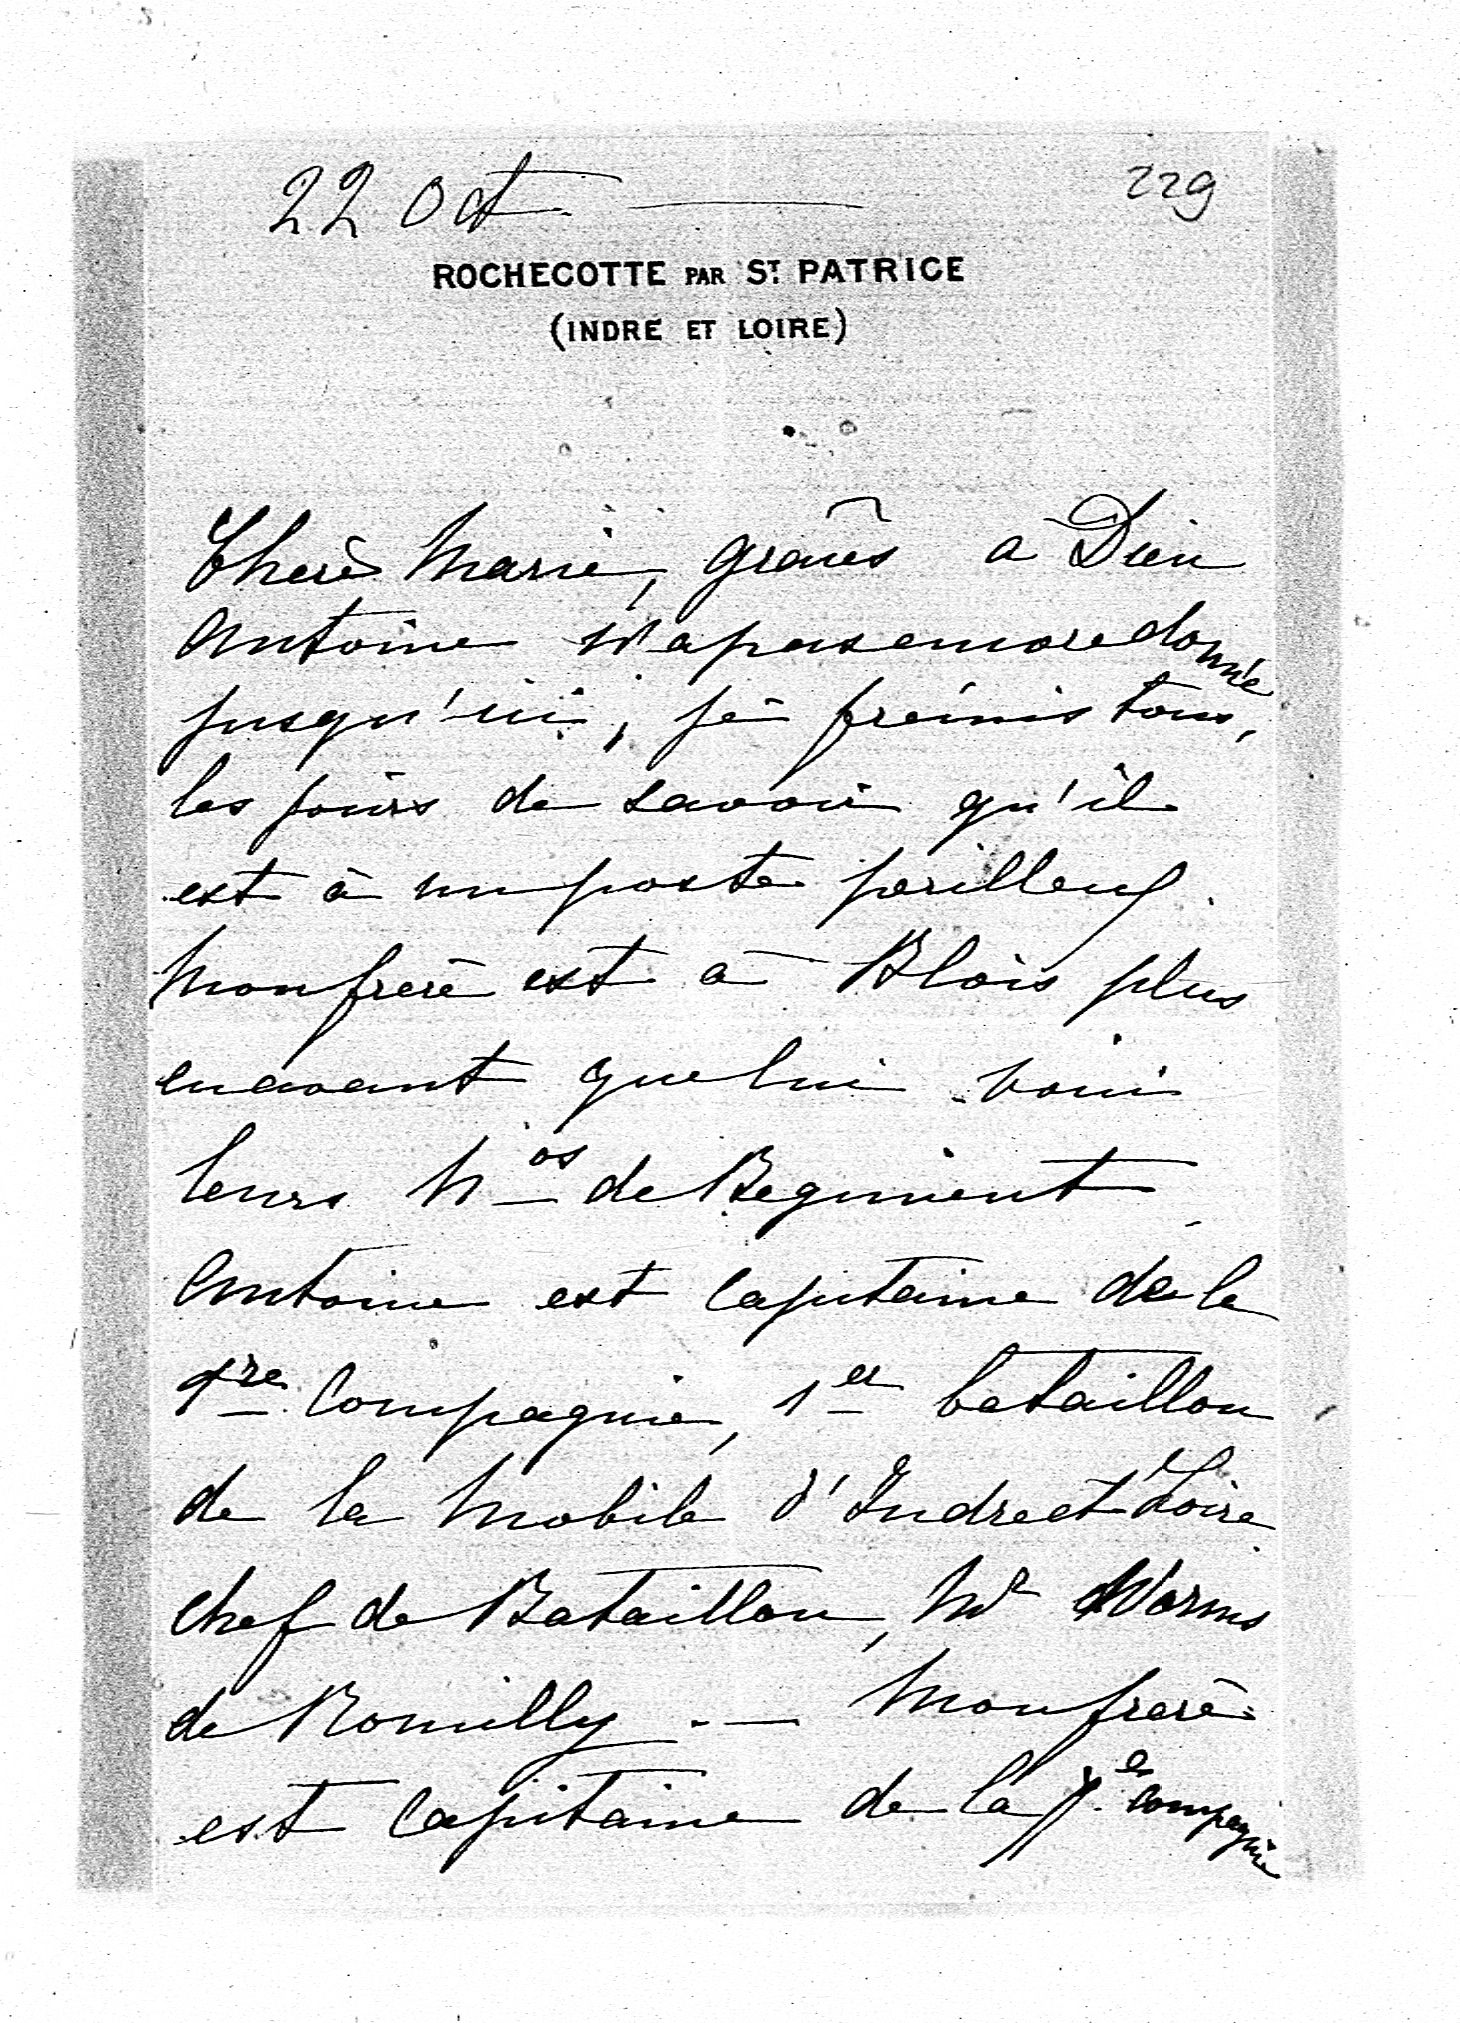 22 Oct
229
ROCHECOTTE PAR ST. PATRICE
(INDRE ET LOIRE)
Chère Marie, grâces à Dieu
Antoine n'a pas encore donné
jusqu'ici, je frémis tous
les jours de savoir qu'il
est à un poste perilleux.
Mon frère est à Blois plus
en avant que lui voici
leurs Nos de Regiment
Antoine est Capitaine de la
1re Compagnie, 1er bataillon
de la Mobile d'Indre et Loire
Chef de Bataillon, Mr Worms
de Romilly. — Mon frère
est Capitaine de la 7e compagnie